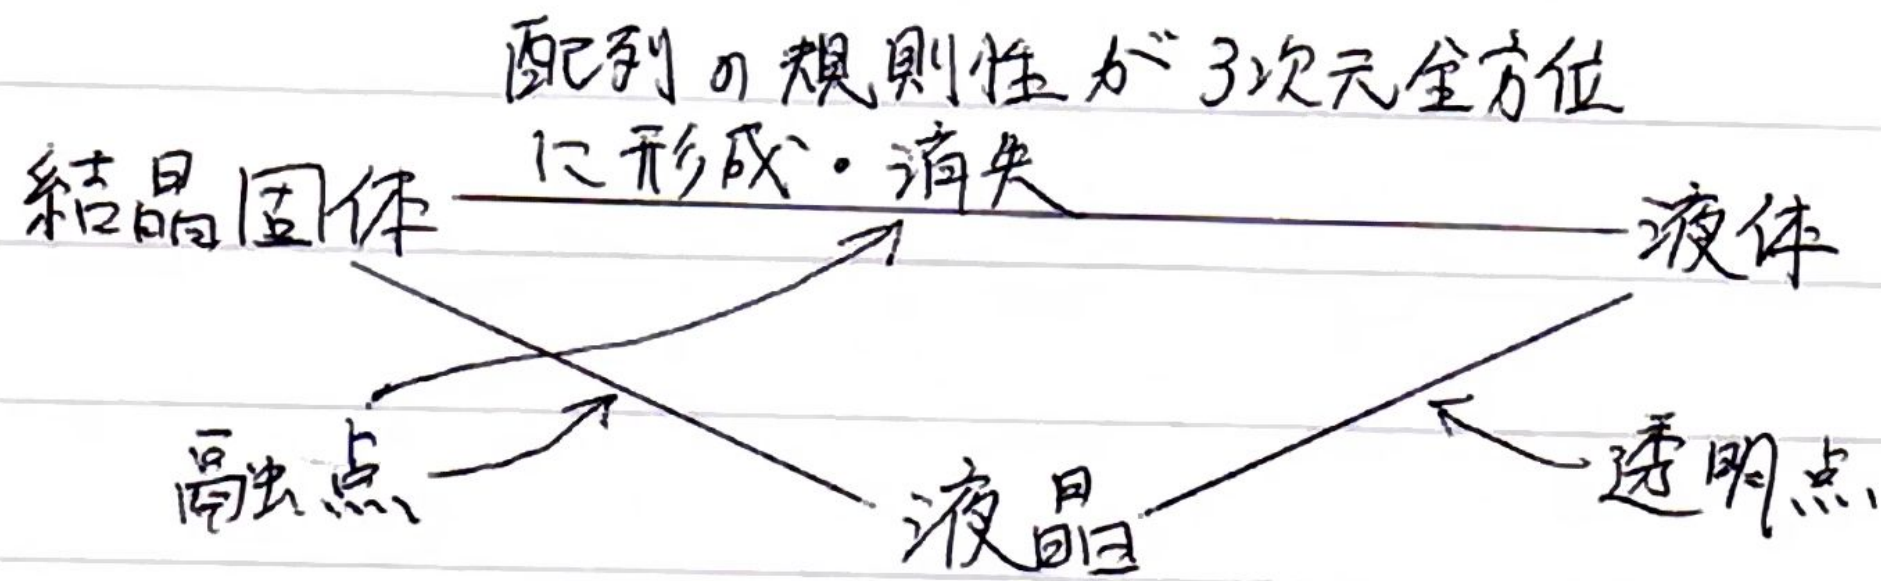 配列の規則性が3次元全方位
に形成・消失
結晶固体
液体
融点
液晶
透明点